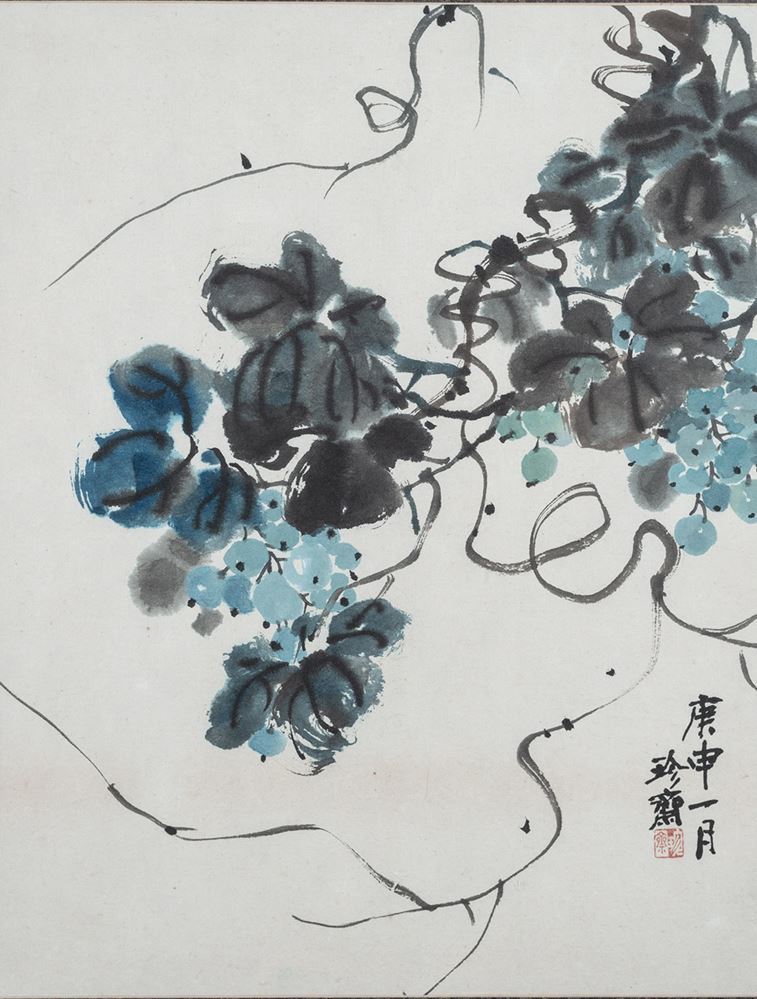 庚申一月
珍齋